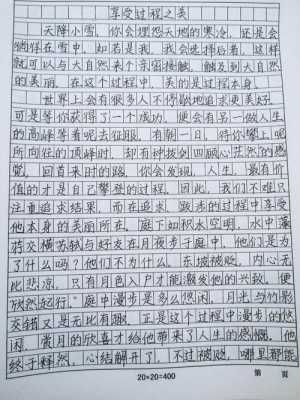 享受过程之美
天降小雪，你会埋怨天地的寒冷，还是会
徜徉在雪中，如若是我，我会选择后者，这样
就可以与大自然来个亲密接触，触及到大自然
的美丽。在这个过程中，美的是过程本身。
世界上会有很多人不停歇地追求更美好，
可是等你获得了一个成功，便会有另一做人生
的高峰等着呢去征服，有朝一日，待你攀上呢
所向往的顶峰时，却有种拔剑四顾心茫然的感
觉，回首来时的路，你会发现，人生，最有价
值的才是自己攀登的过程。因此，我们不难只
注重追求结果，而在追求、跋涉的过程中享受
他本身的美丽所在。庭下如积水空明，水中藻
荇交横苏轼与好友在月夜步于庭中，他们是为
了什么吗？他们不为什么，东坡被贬，内心无
比悲凉，只有月色入户才能激发他的兴致，便
“欣然起行。”庭中漫步是多么悠闲，月光与竹影
交错又是无比有趣。正是这个过程中漫步的悠
闲，赏月的欣喜才给他带来了人生的感慨。他
终于释然，心结解开了，不过被贬，哪里都能
20×20=400
第 页